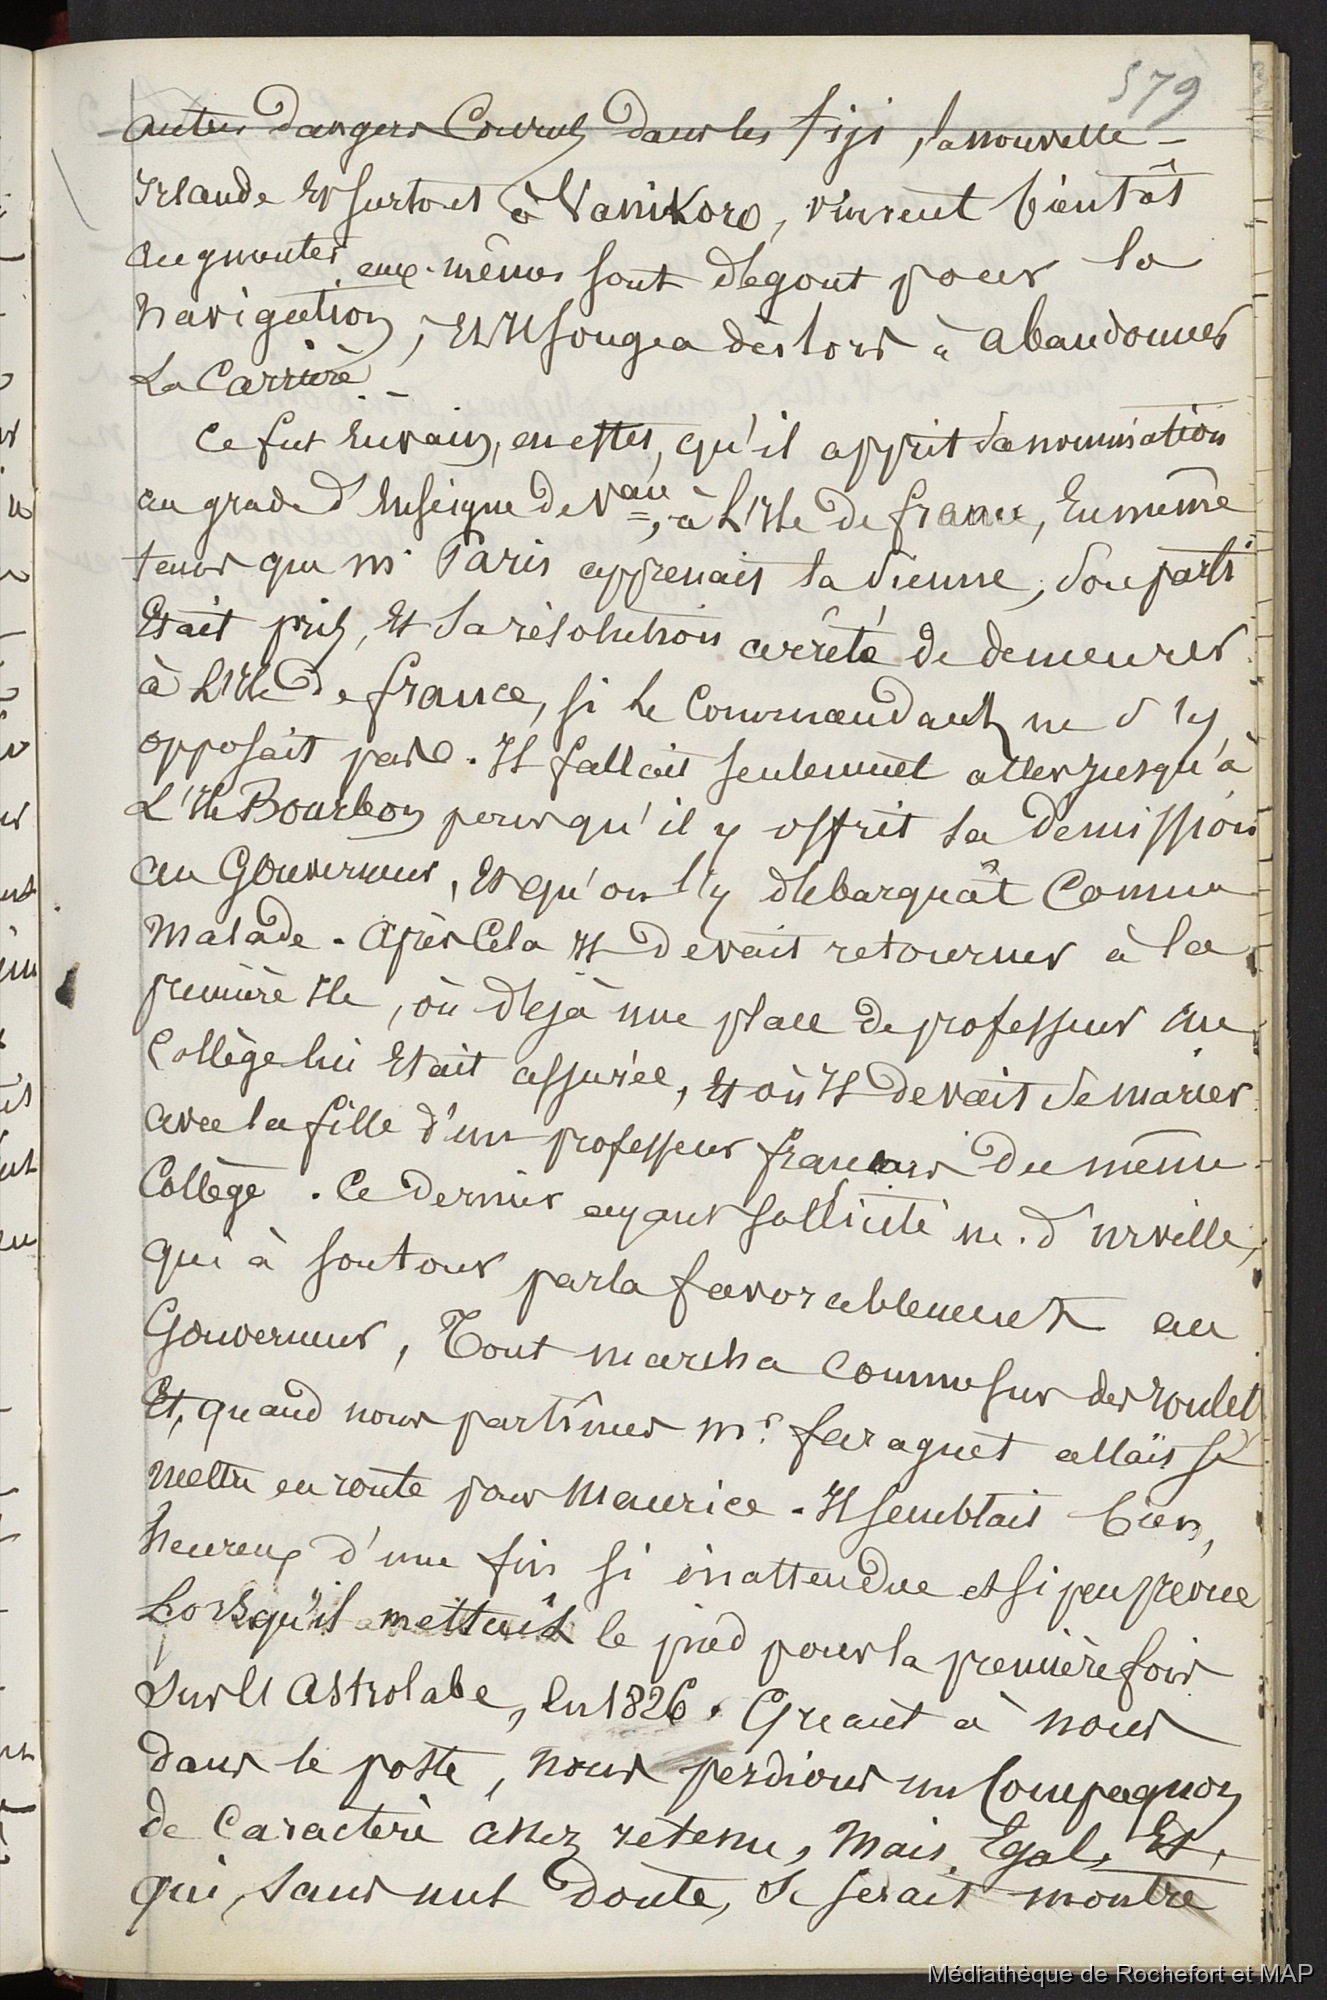 579
autres dangers Courus dans les fiji, la nouvelle-
Irlande Et surtout à Vanikoro, vinrent bientôt
augmenter eux-mêmes sont dégout pour la
Navigation, Et Il songea dès lors à abandonner
La Carrière.
Ce fut Envain, en effet, qu'il apprit sa nomination
au grade d'Enseigne de Vau, à L'Ile de france, En même
tems que mr Paris apprenait la sienne, son parti
Etait pris, Et sa résolution arrêté de demeurer
à L'Ile De france, si Le Commandant ne s'y
opposait pas. Il fallait seulement aller jusqu'à
L'Ile Bourbon pour qu'il y offrit sa demission
au Gouverneur, Et qu'on l'y débarquât Comme
Malade. Après Cela Il devait retourner à la
première Ile, où déjà une place de professeur au
Collège lui Etait assurée, Et où Il devait se marier
avec la fille d'un professeur français du même
Collège. Ce dernier ayant sollicité m. d'Urville,
qui à son tour parla favorablement au
Gouverneur, Tout marcha comme sur des roulet
Et, quand nous partîmes mr. faraguet allait se
mettre en route pour Maurice. Il semblait bien,
heureux d'une fin si inattendue et si peu prevue
Lorsqu'il mettait le pied pour la première fois
Sur L'Astrolabe, En 1826. Quant à nous
dans le poste, nous perdions un Compagnon
de Caractère assez retenu, Mais Egal, Et,
qui, sans nul doute, se serait montré
Médiathèque de Rochefort et MAP